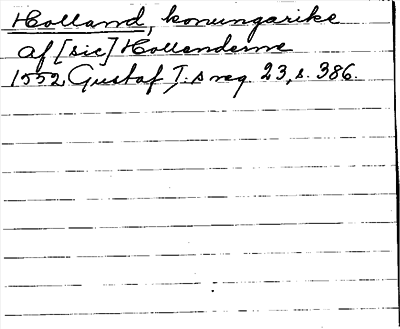 Holland, konungarike
af [sic] Hollenderne
1552 Gustaf I:s reg. 23, s. 386.